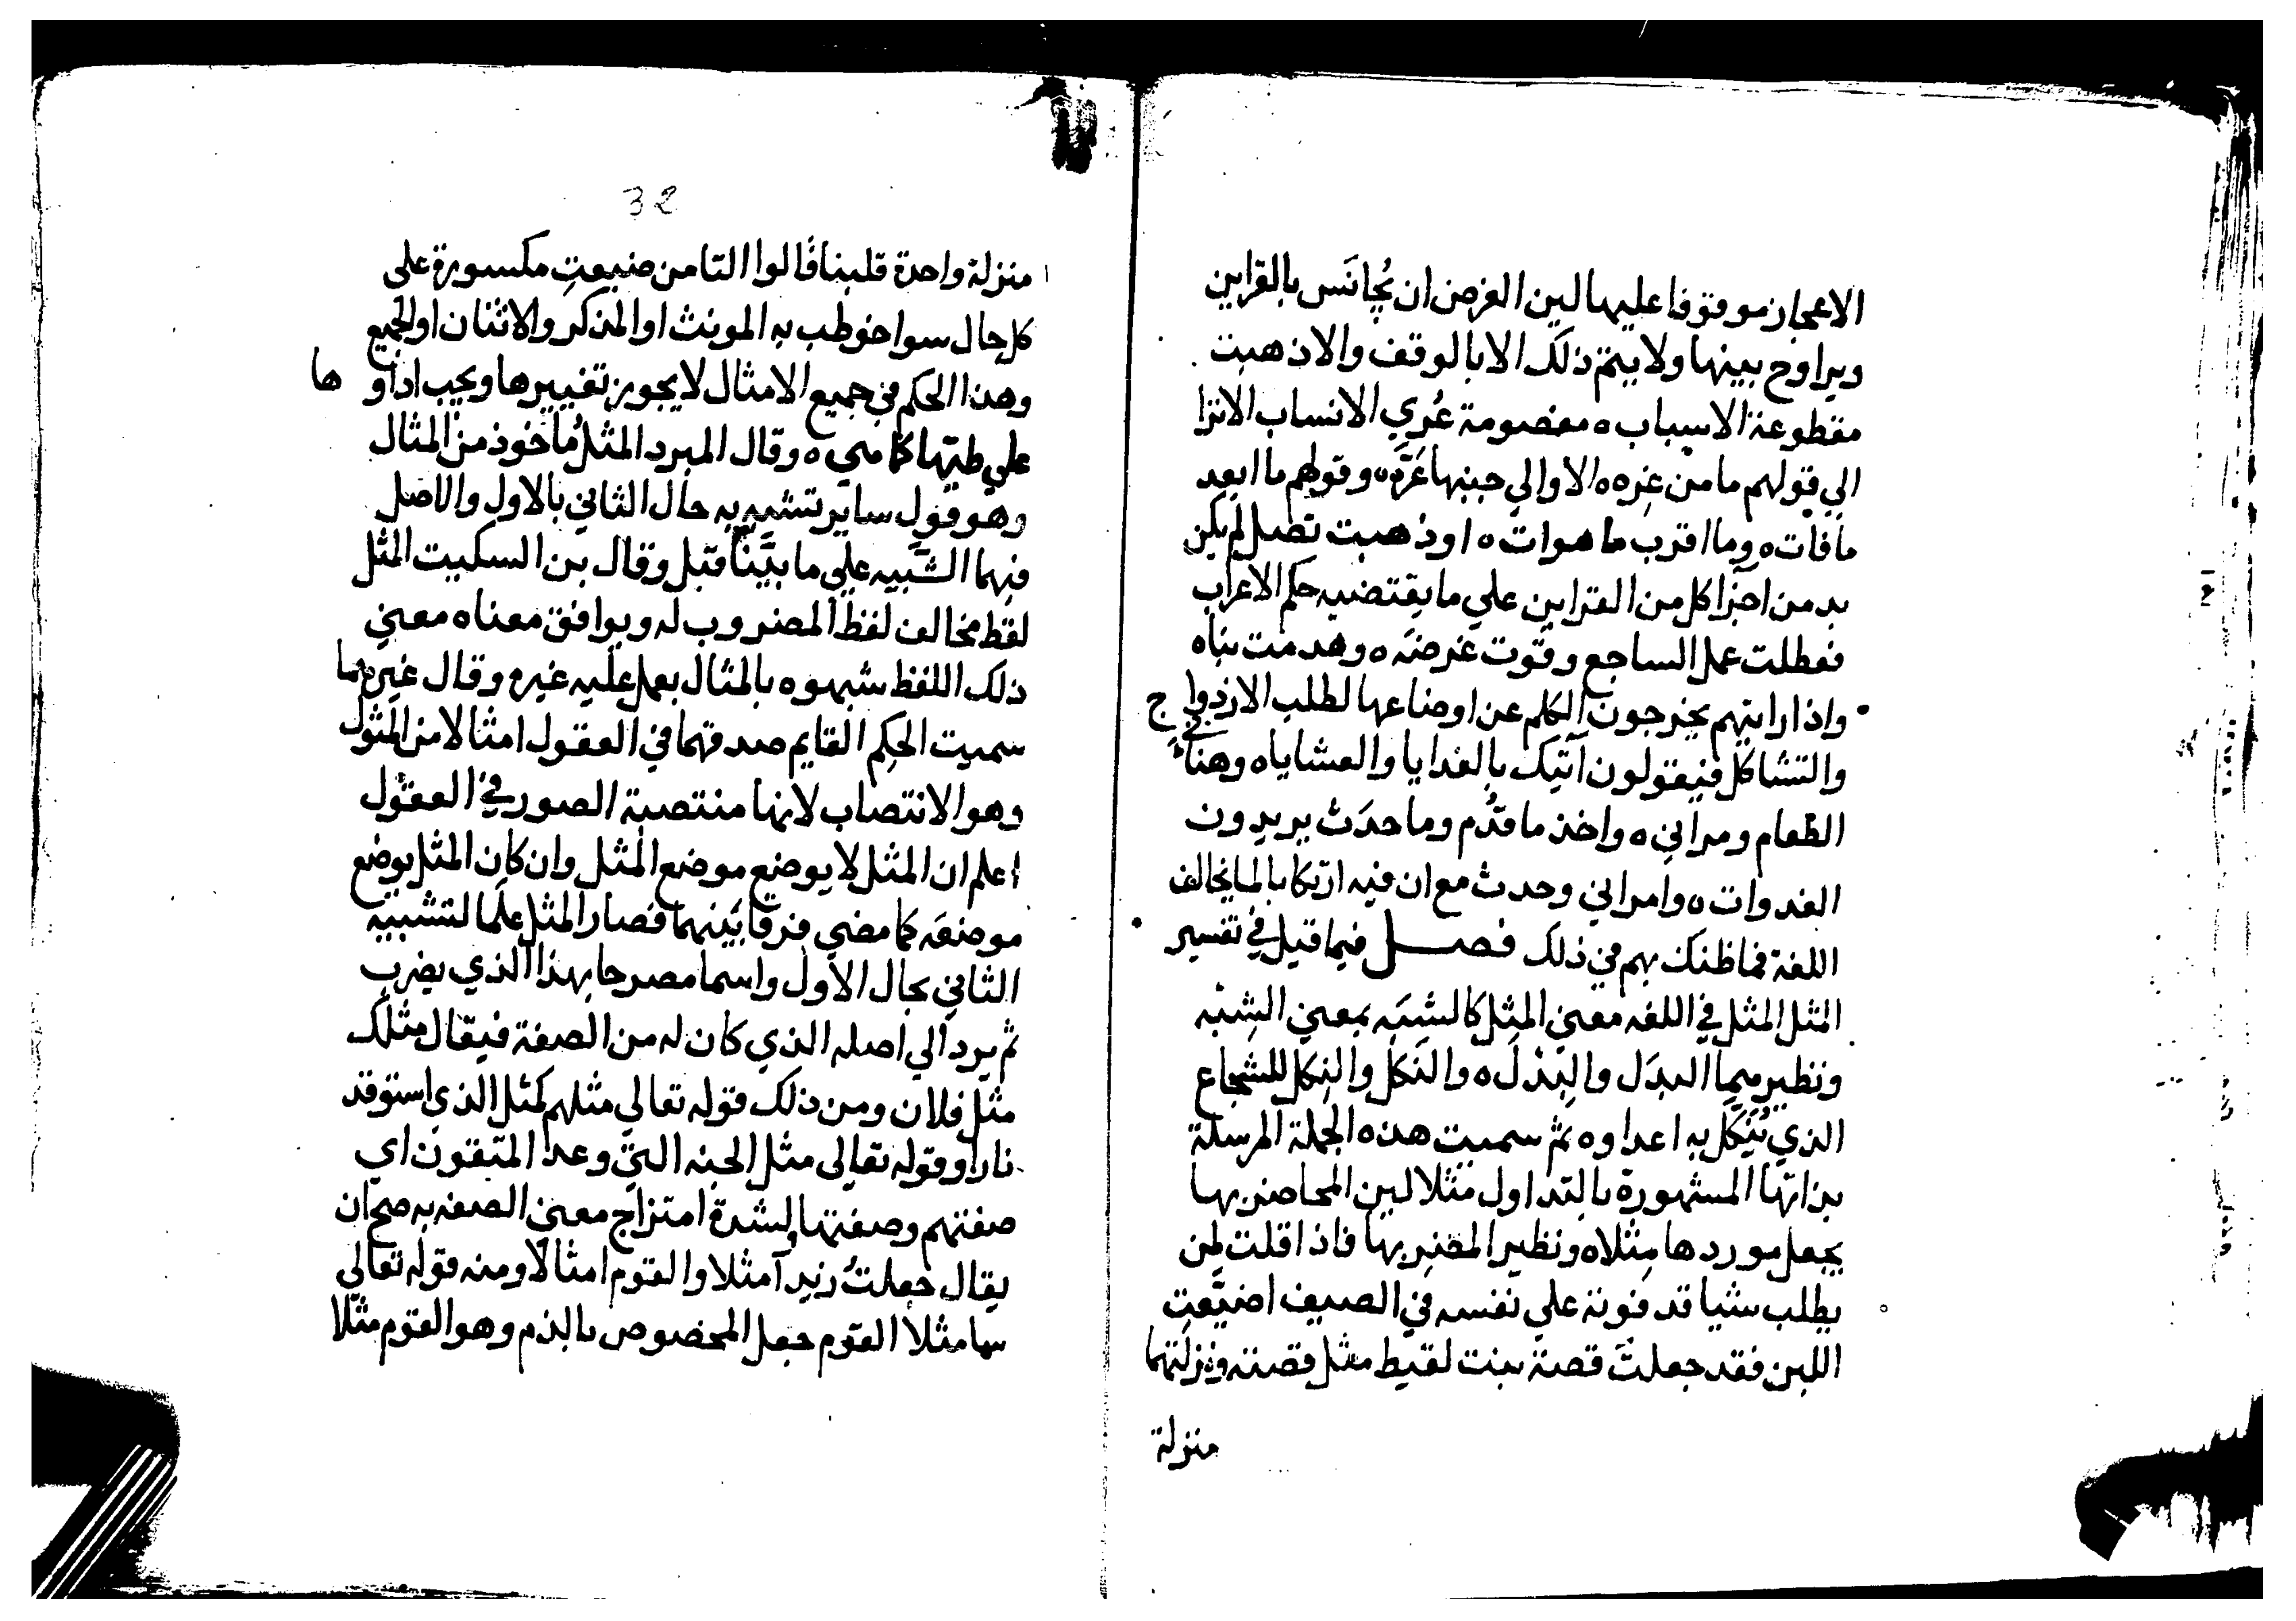 الاعجاز موقوفا عليها لين الغرض ان يُجانَس بالقراين
ويراوح بينها ولا يتم ذلك الا بالوقف والا ذهبت
مقطوعة الاسباب ه مفصومة عُري الانساب الا نرا
الي قولهم ما من غِره ه الا والي جنبها عَرَّه ه وقولهم ما ابعد
ما فات ه وما اقرب ما هوات ه او ذهبت تصل لم يكن
بد من اجرا كل من القراين علي ما يقتضيه حكم الاعراب
فعطلت عمل الساجع وفوت غرضَه ه وهدمت بناه
واذا رايتهم يخرجون الكلم عن اوضاعها لطلب الازدواج
والتشاكل فيقولون آتيك بالغدايا والعشايا ه وهنا
الطعام ومراني ه واخذ ما قَدُم وما حدَث يريدون
الغدوات ه وامراني وحدث مع ان فيه ارتكابا لما يخالف
اللغة فما ظنك بهم في ذلك فصل فيما قيل في تفسير
المثل المثل في اللغه معني المِثل كالشبَه بمعني الشِبْه
ونظيرهما البدَل والبِدْل ه والنَكَل والنِكل للشجاع
الذي يُنَكَّل به اعداوه ثم سميت هذه الجملة المرسلة
بذاتها المشهورة بالتداول مثلا لين المحاضر بها
يجعل موردها مِثلا ه ونظير المضربها فاذا قلت لمن
يطلب شيا قد فوته علي نفسه في الصيف اضيّعتِ
اللبن فقد جعلتَ قصة بنت لقيط مثل قصته ونزلتهما
منزلة
32
منزلة واحدة قلبنا قالوا التا من ضيعتِ مكسورة علي
كل حال سوا خوطب به المونث او المذكر والاثنان او الجميع
وهذا الحكم في جميع الامثال لا يجوز تغييرها ويجب اداوها
علي طيتها كما هي ه وقال المبرد المثل مُاخوذ من المثال
وهو قول ساير تشبه به حال الثاني بالاول والاصل
فيهما الشبيه علي ما بيَّنا قبل وقال بن السكيت المثل
لفظ مخالف لفظ المضروب له ويوافق معناه معني
ذلك اللفظ شبهوه بالمثال يعمل عليه غيره وقال غيرهما
سميت الحِكم القايم صدقهما في العقول امثالا من المثول
وهو الانتصاب لانها منتصبة الصور في العقول
اعلم ان المثل لا يوضع موضع المثل وان كان المثل يوضع
موضعَه كما مضي فرقا بَينهما فصار المثل علما لتشبيه
الثاني بحال الاول واسما مصرحا بهذا الذي يضرب
ثم يرد الي اصله الذي كان له من الصفة فيقال مثلك
مثل فلان ومن ذلك قوله تعالي مثلهم كمثل الذي استوقد
نارا وقوله تعالى مثل الجنه التي وعدا المتقون اي
صفتهم وصفتها ولشدة امتزاج معني الصفه به صح ان
يقال جعلتُ زيدآ مثلا والقوم امثالا ومنه قوله تعالي
سا مثلا القوم جعل المخصوص بالذم وهو القوم مثلا